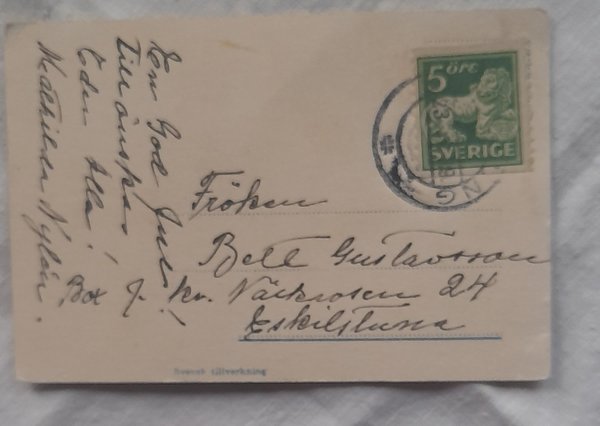 En God Jul!
Tillönskas
Eder Alla!
Mathilda Nylén.
5 ÖRE
SVERIGE
Fröken
Bell Gustavsson
Box 7. kv. Näckrosen 24
Eskilstuna
Svensk tillverkning